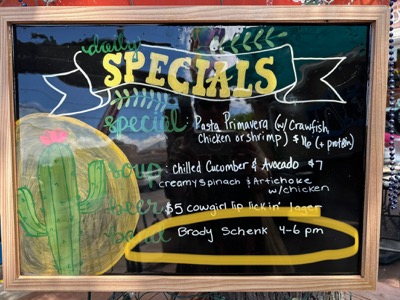 daily
SPECIALS
special: Pasta Primavera (w/ Crawfish,
Chicken or shrimp) $16 (+ protein)
soup: Chilled Cucumber & Avocado $7
creamy spinach & Artichoke
w/chicken
beer $5 cowgirl lip lickin' lager
band Brody Schenk 4-6 pm